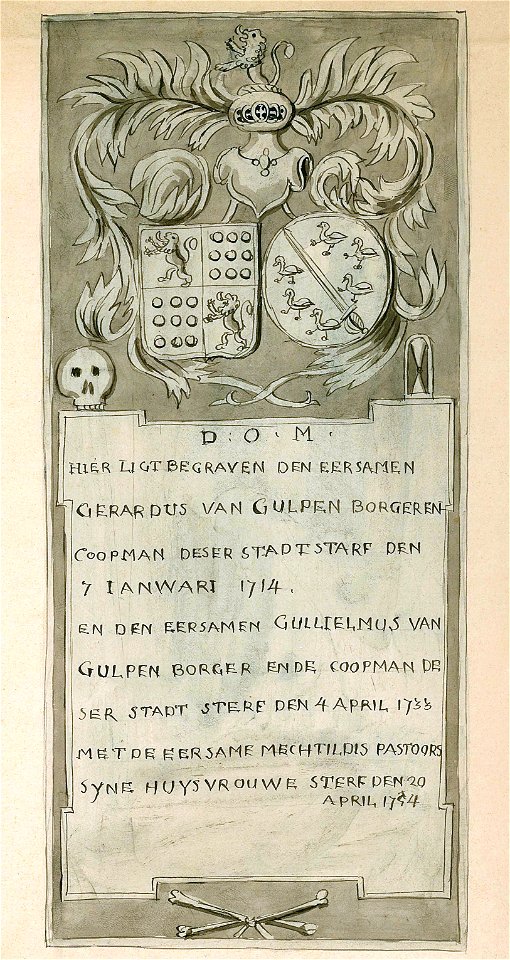 D. O. M.
HIER LIGT BEGRAVEN DEN EERSAMEN
GERARDUS VAN GULPEN BORGER EN
COOPMAN DESER STADT STARF DEN
7 IANWARI 1714.
EN DEN EERSAMEN GULLIELMUS VAN
GULPEN BORGER ENDE COOPMAN DE
SER STADT STERF DEN 4 APRIL 1733
MET DE EERSAME MECHTILDIS PASTOORS
SYNE HUYSVROUWE STERF DEN 20
APRIL